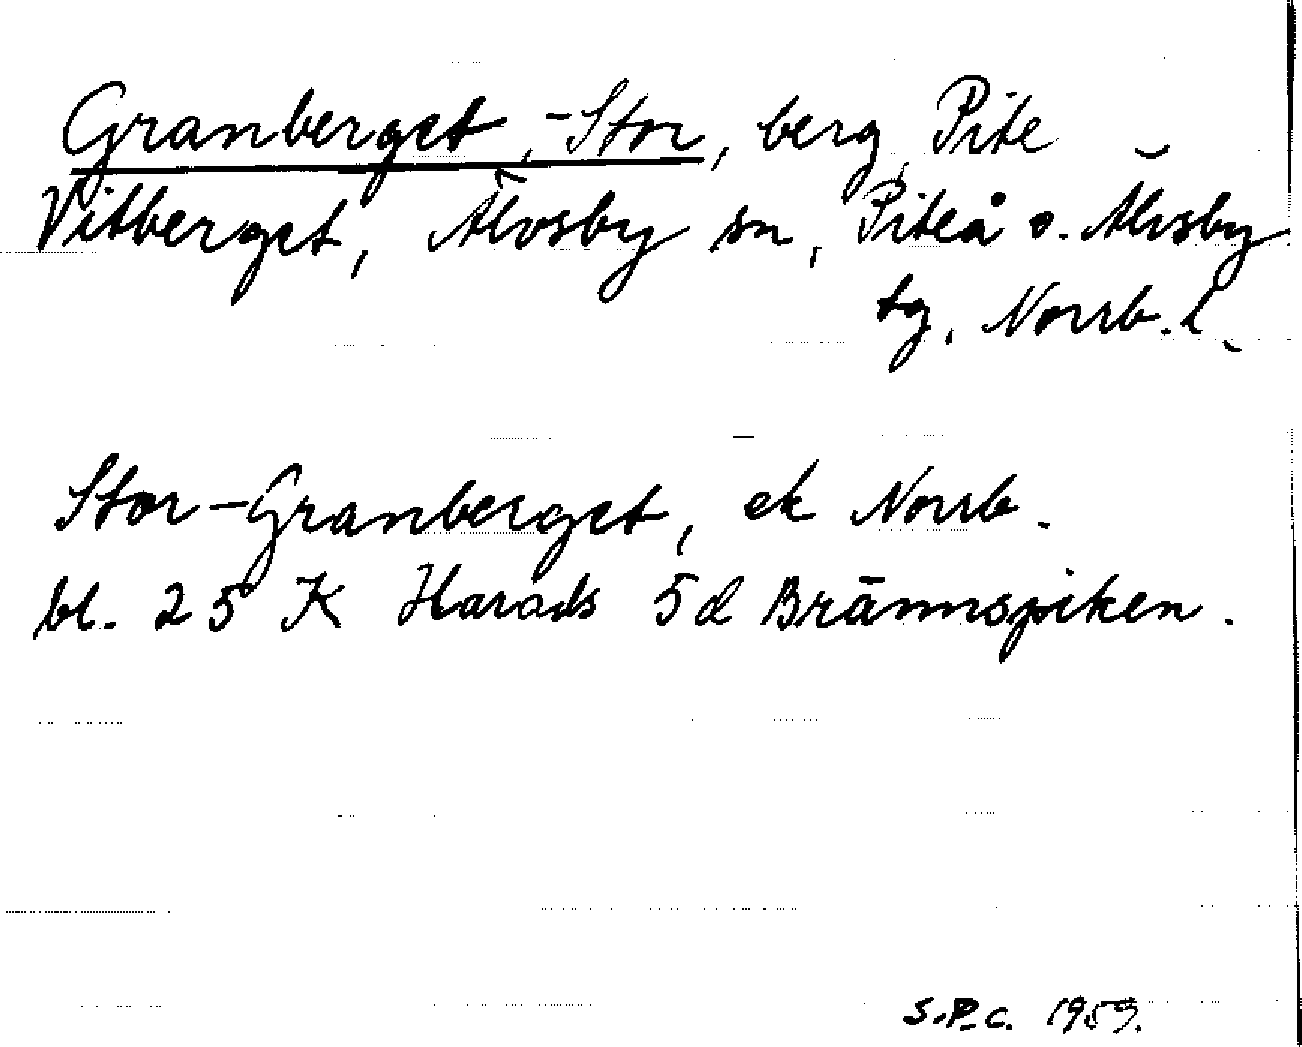 Granberget, -Stor, berg, Pite
Vitberget, Älvsby sn, Piteå o. Älvsby
tg, Norrb. l.
Stor-Granberget, ek Norrb.
bl. 25 K Harads 5d Brännspiken.
S.P.C. 1959.